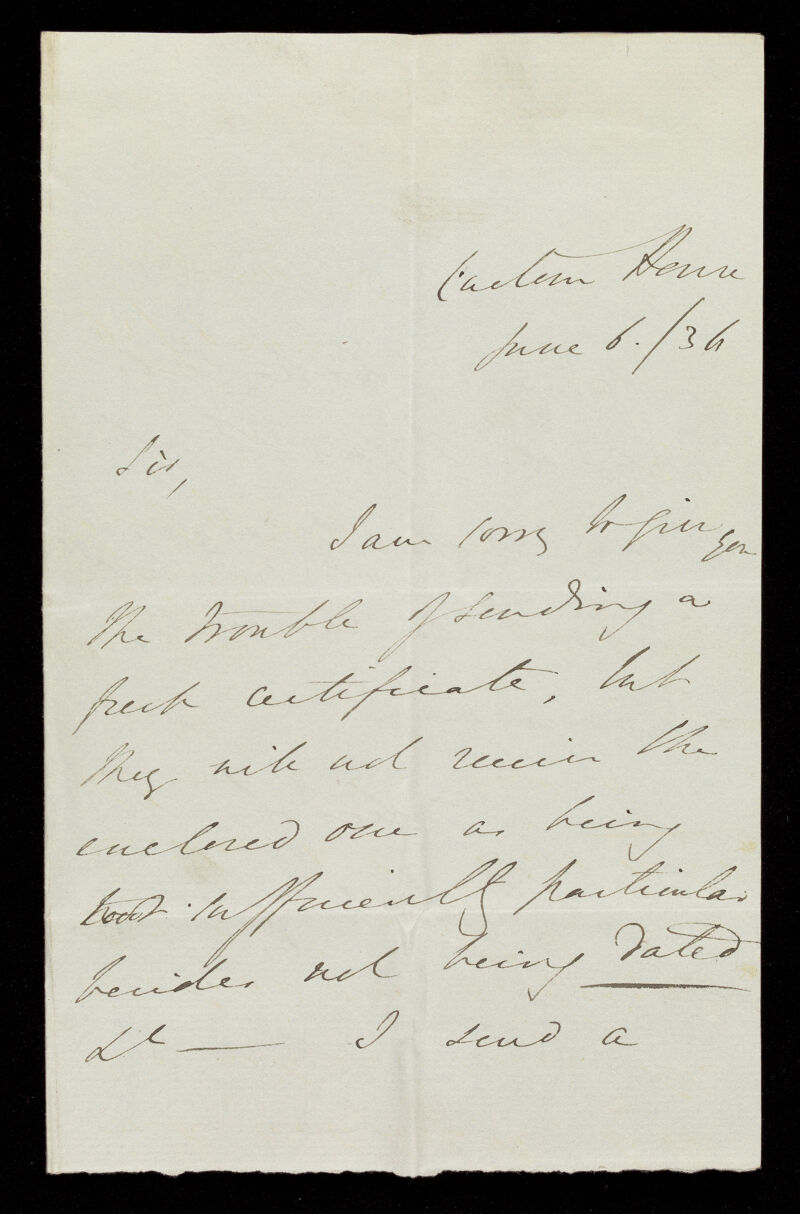 Custom House
June 6./36
Sir,
I am sorry to give you
the trouble of sending a
fresh certificate, but
they will not receive the
enclosed one as being
not sufficiently particular
besides not being dated
&c — I send a